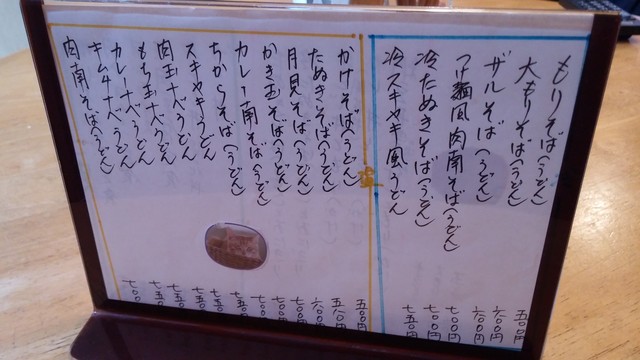 もりそば(うどん) 五〇〇円
大もりそば(うどん) 六〇〇円
ザルそば(うどん) 六〇〇円
つけ麺風肉南そば(うどん) 七〇〇円
冷たぬきそば(うどん) 七〇〇円
冷スキヤキ風うどん 七五〇円
温
かけそば(うどん) 五〇〇円
たぬきそば(うどん)
月見そば(うどん) 六〇〇円
かき玉そば(うどん) 七〇〇円
カレー南そば(うどん) 七〇〇
ちからそば(うどん) 七〇〇
スキヤキうどん 七五〇
肉玉ナベうどん 七五〇
もち玉ナベうどん 七五〇
カレーナベうどん 七五〇
キムチナベうどん 七五〇
肉南そば(うどん) 七〇〇